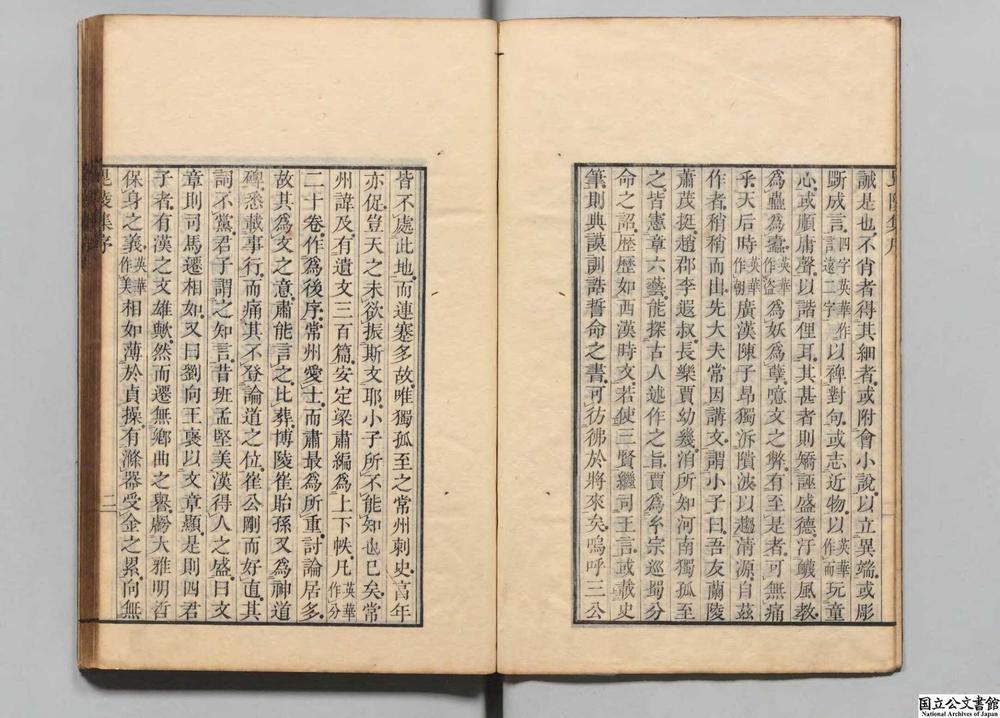 毘陵集序
誠是也不肖者得其細者或附會小說以立異端或彫
斲成言四字英華作言遠二字以裨對句或志近物以英華作而玩童
心或順庸聲以諧俚耳其甚者則矯誣盛德汙衊風教
為蠱為蠹英華作盜為妖為孽噫文之弊有至是者可無痛
乎天后時英華作朝廣漢陳子昂獨泝隤波以趨清源自茲
作者稍稍而出先大夫常因講文謂小子曰吾友蘭陵
蕭茂挺趙郡李遐叔長樂賈幼幾洎所知河南獨孤至
之皆憲章六藝能探古人述作之旨賈為玄宗巡蜀分
命之詔歷歷如西漢時文若使三賢繼司王言或載史
筆則典謨訓誥誓命之書可彷彿於將來矣嗚呼三公
皆不處此地而連蹇多故唯獨孤至之常州刺史享年
亦促豈天之未欲振斯文耶小子所不能知也已矣常
州諱及有遺文三百篇安定梁肅編為上下帙凡英華作分
二十卷作為後序常州愛士而肅最為所重討論居多
故其為文之意肅能言之比葬博陵崔貽孫又為神道
碑悉載事行而痛其不登論道之位崔公剛而好直其
詞不黨君子謂之知言昔班孟堅美漢得人之盛曰文
章則司馬遷相如又曰劉向王褒以文章顯是則四君
子者有漢之文雄歟然而遷無鄉曲之譽虧大雅明哲
保身之義英華作美相如薄於貞操有滌器受金之累向無
毘陵集序
二
国立公文書館
National Archives of Japan